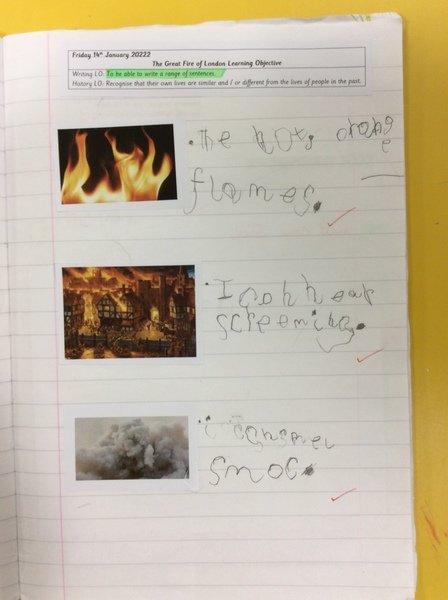 Friday 14th January 20222
The Great Fire of London Learning Objective
Writing LO: To be able to write a range of sentences.
History LO: Recognise that their own lives are similar and / or different from the lives of people in the past.
The hot, orange
flames.
I can hear
screeming.
i can smel
smoc.